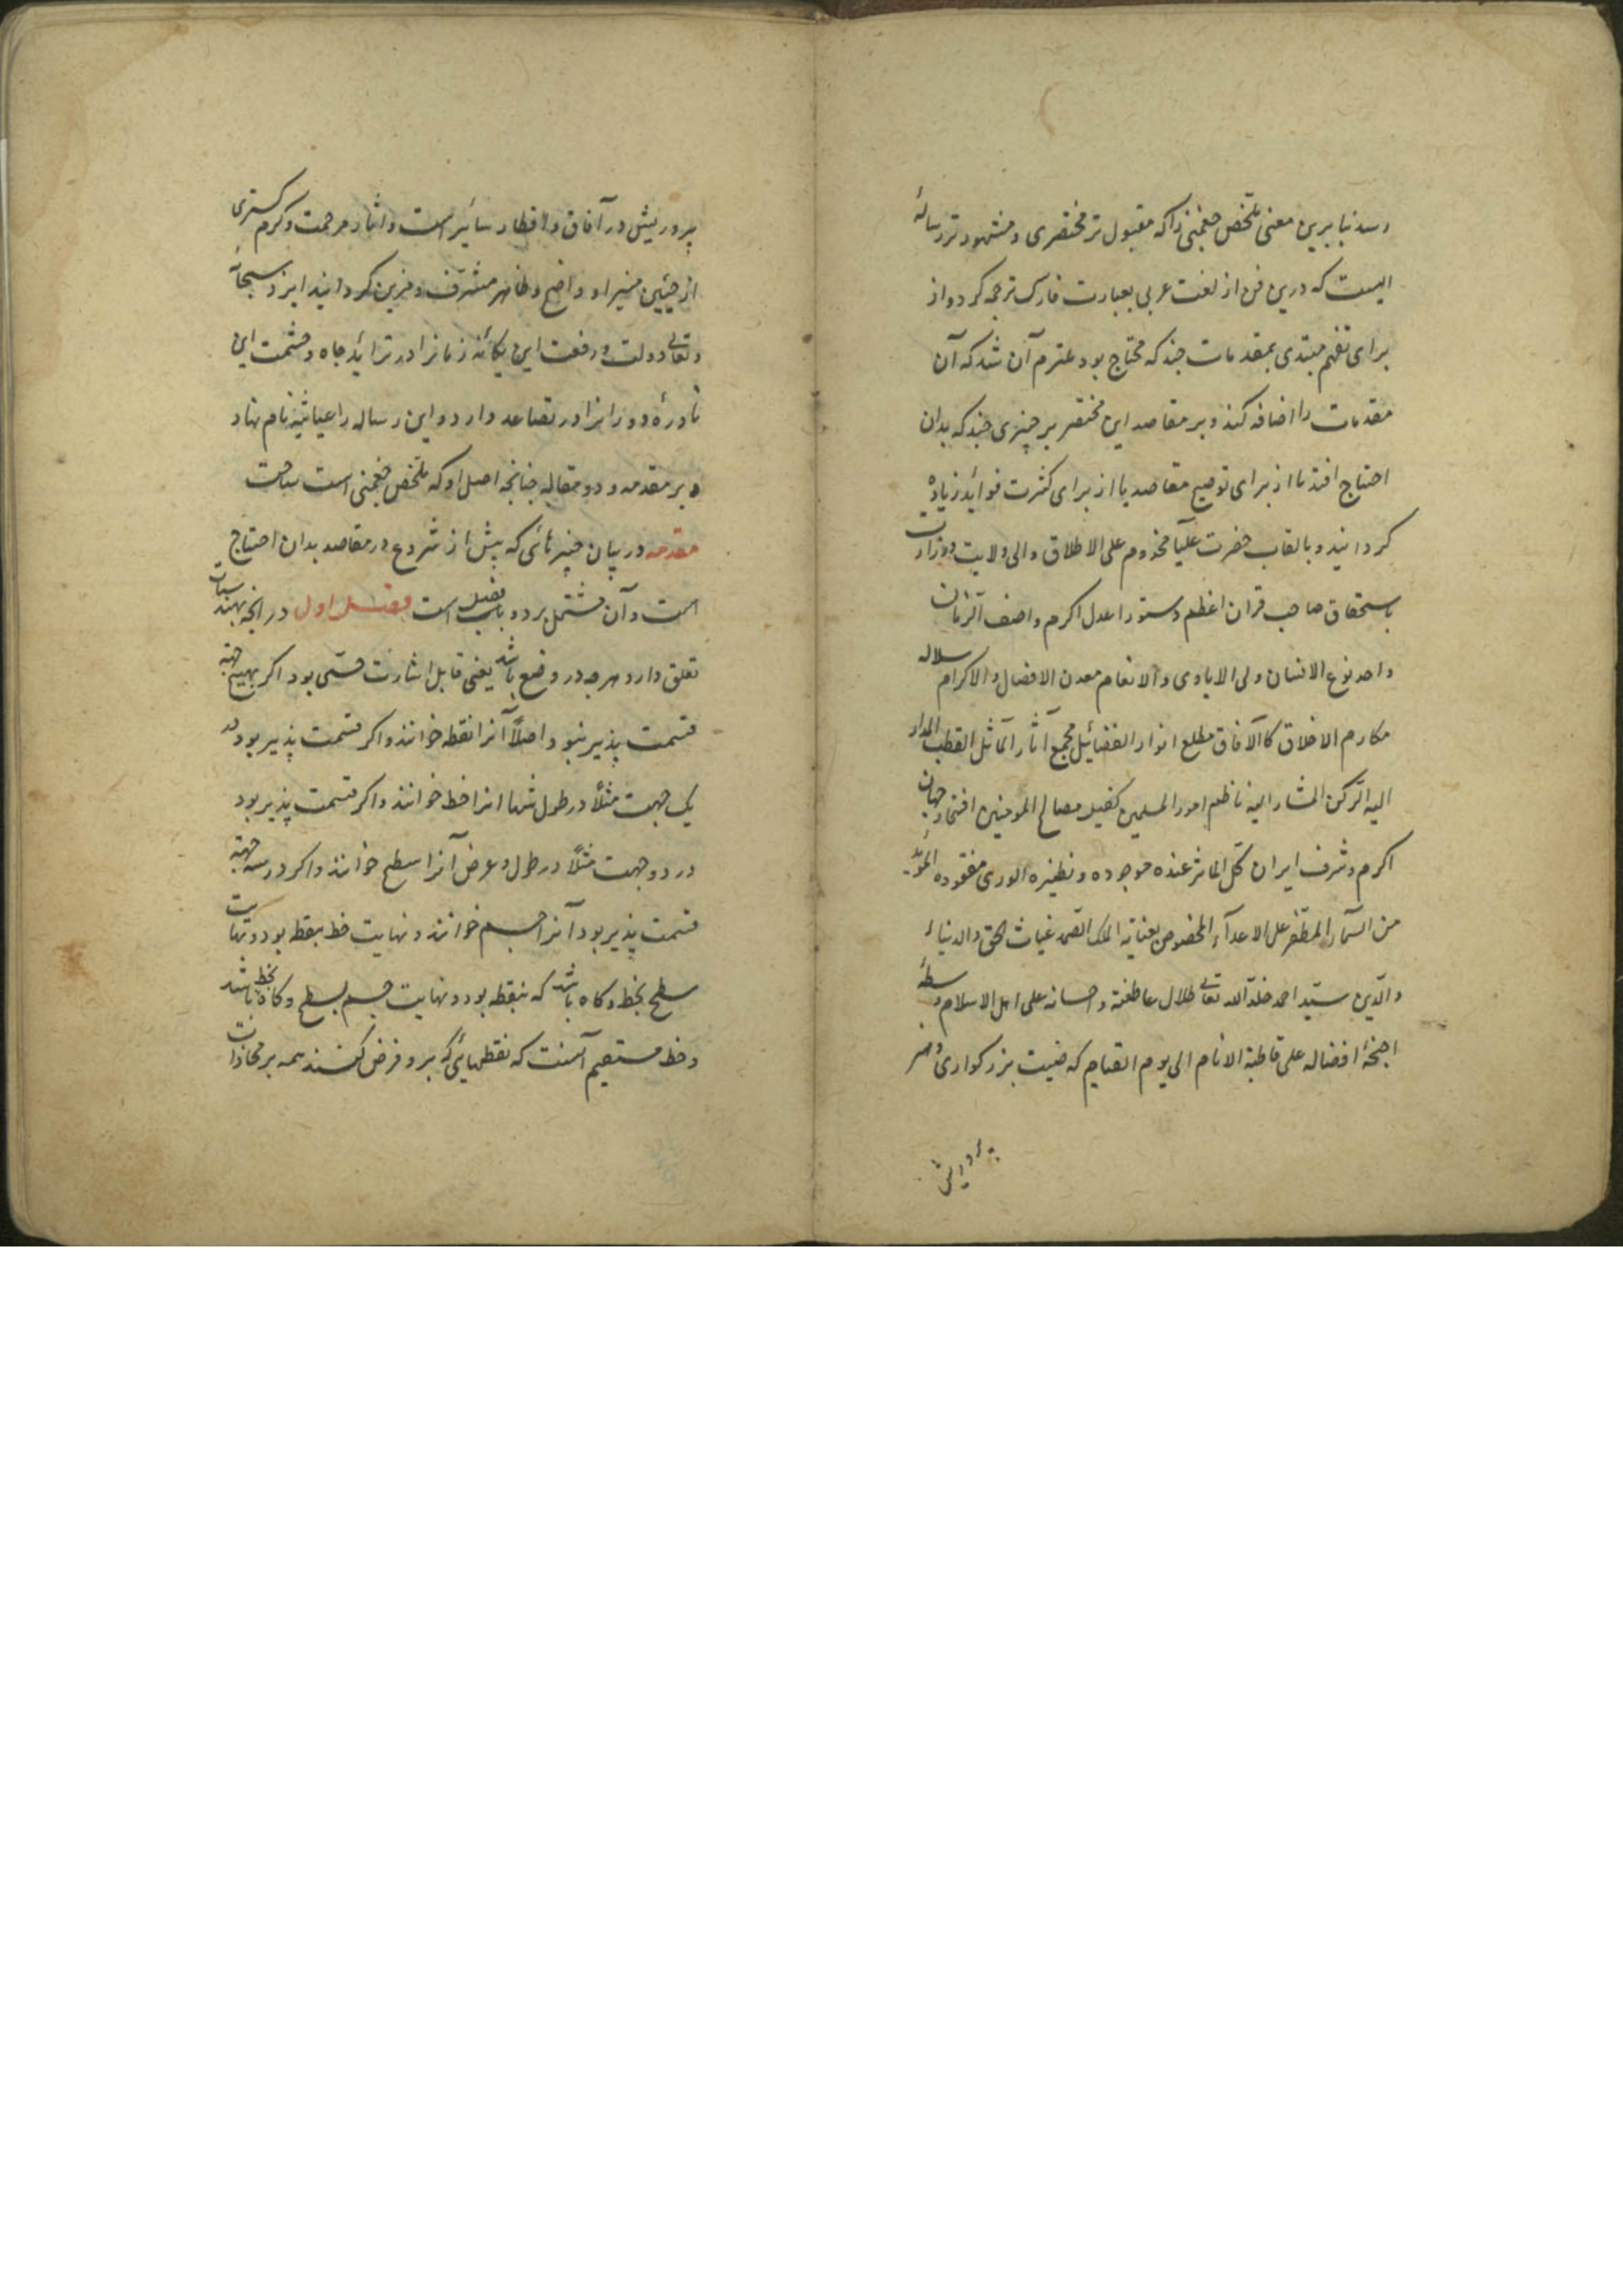 رسد بنا برین معنی ملخص چغمینی را که مقبول تر مختصری و مشهور تر رساله
ایست که درین فن از لغت عربی بعبارت فارسی ترجمه کرد و از
برای تفهم مبتدی بمقدمات چند که محتاج بود عتزم آن شد که آن
مقدمات را اضافه کند و بر مقاصد این مختصر بر چیزی چند که بدان
احتیاج افتد یا از برای توضیح مقاصد یا از برای کثرت فواید زیاده
کردانید و بالقاب حضرت علیا مخدوم علی الاطلاق والی ولایت وزارت
باستحقاق صاحب قران اعظم دستور اعدل اکرم و اصف الزمان
واحد نوع الانسان ولی الایادی والانعام معدن الافضال والاکرام سلاله
مکارم الاخلاق کالآفاق مطلع انوار الفضائل مجمع آثار الماثل القطب المدار
الیه الرکن المشار الیه ناظم امور المسلمین کفیل مصالح المومنین افتخار جهان
اکرم و شرف ایران کل الماثر عنده موجوده و نظیره الوری مفقوده المؤید
من السمآء المظفر علی الاعدآء المخصوص بعنایة الملک الصمد غیاث الحق والدنیاء
والدین سید احمد خلد الله تعالی ظلال عاطفته و احسانه علی اهل الاسلام وسطه
اجنحة افضاله علی قاطبة الانام الی یوم القیام که صیت بزرکواری و هنر
پروریش
پروریش در آفاق و اقطار سائر است و آثار مرحمت و کرم کستری
از جبین منیر او واضح و ظاهر مشرف و مزین کردانید ایزد سبحانه
و تعالی دولت و رفعت این یکانه زمانرا در تزاید جاه و حشمت این
نادرهٔ دورانرا در تصاعد دارد و این رساله را غیاثیه نام نهاد
و بر مقدمه و دو مقاله چنانچه اصل او که ملخص چغمینی است ساخت
مقدمه در بیان چیزهائی که پیش از شروع در مقاصد بدان احتیاج
است و آن مشتمل بر دو باب فصل است فصل اول در انچه بهندسیات
تعلق دارد هرچه در وضع باشد یعنی قابل اشارت حسی بود اکر بهیچ جهة
قسمت پذیر نبود اصلاً آنرا نقطه خوانند و اکر قسمت پذیر بود در
یک جهت مثلاً در طول تنها انرا خط خوانند و اکر قسمت پذیر بود
در دو جهت مثلاً در طول و عرض آنرا سطح خوانند و اکر در سه جهة
قسمت پذیر بود آنرا جسم خوانند و نهایت خط بنقطه بود و نهایت
سطح بخط و کاه باشد که بنقطه بود و نهایت جسم بسطح و کاه بخط باشد
و خط مستقیم آنست که نقطهایی که برو فرض کنند همه بر محاذات